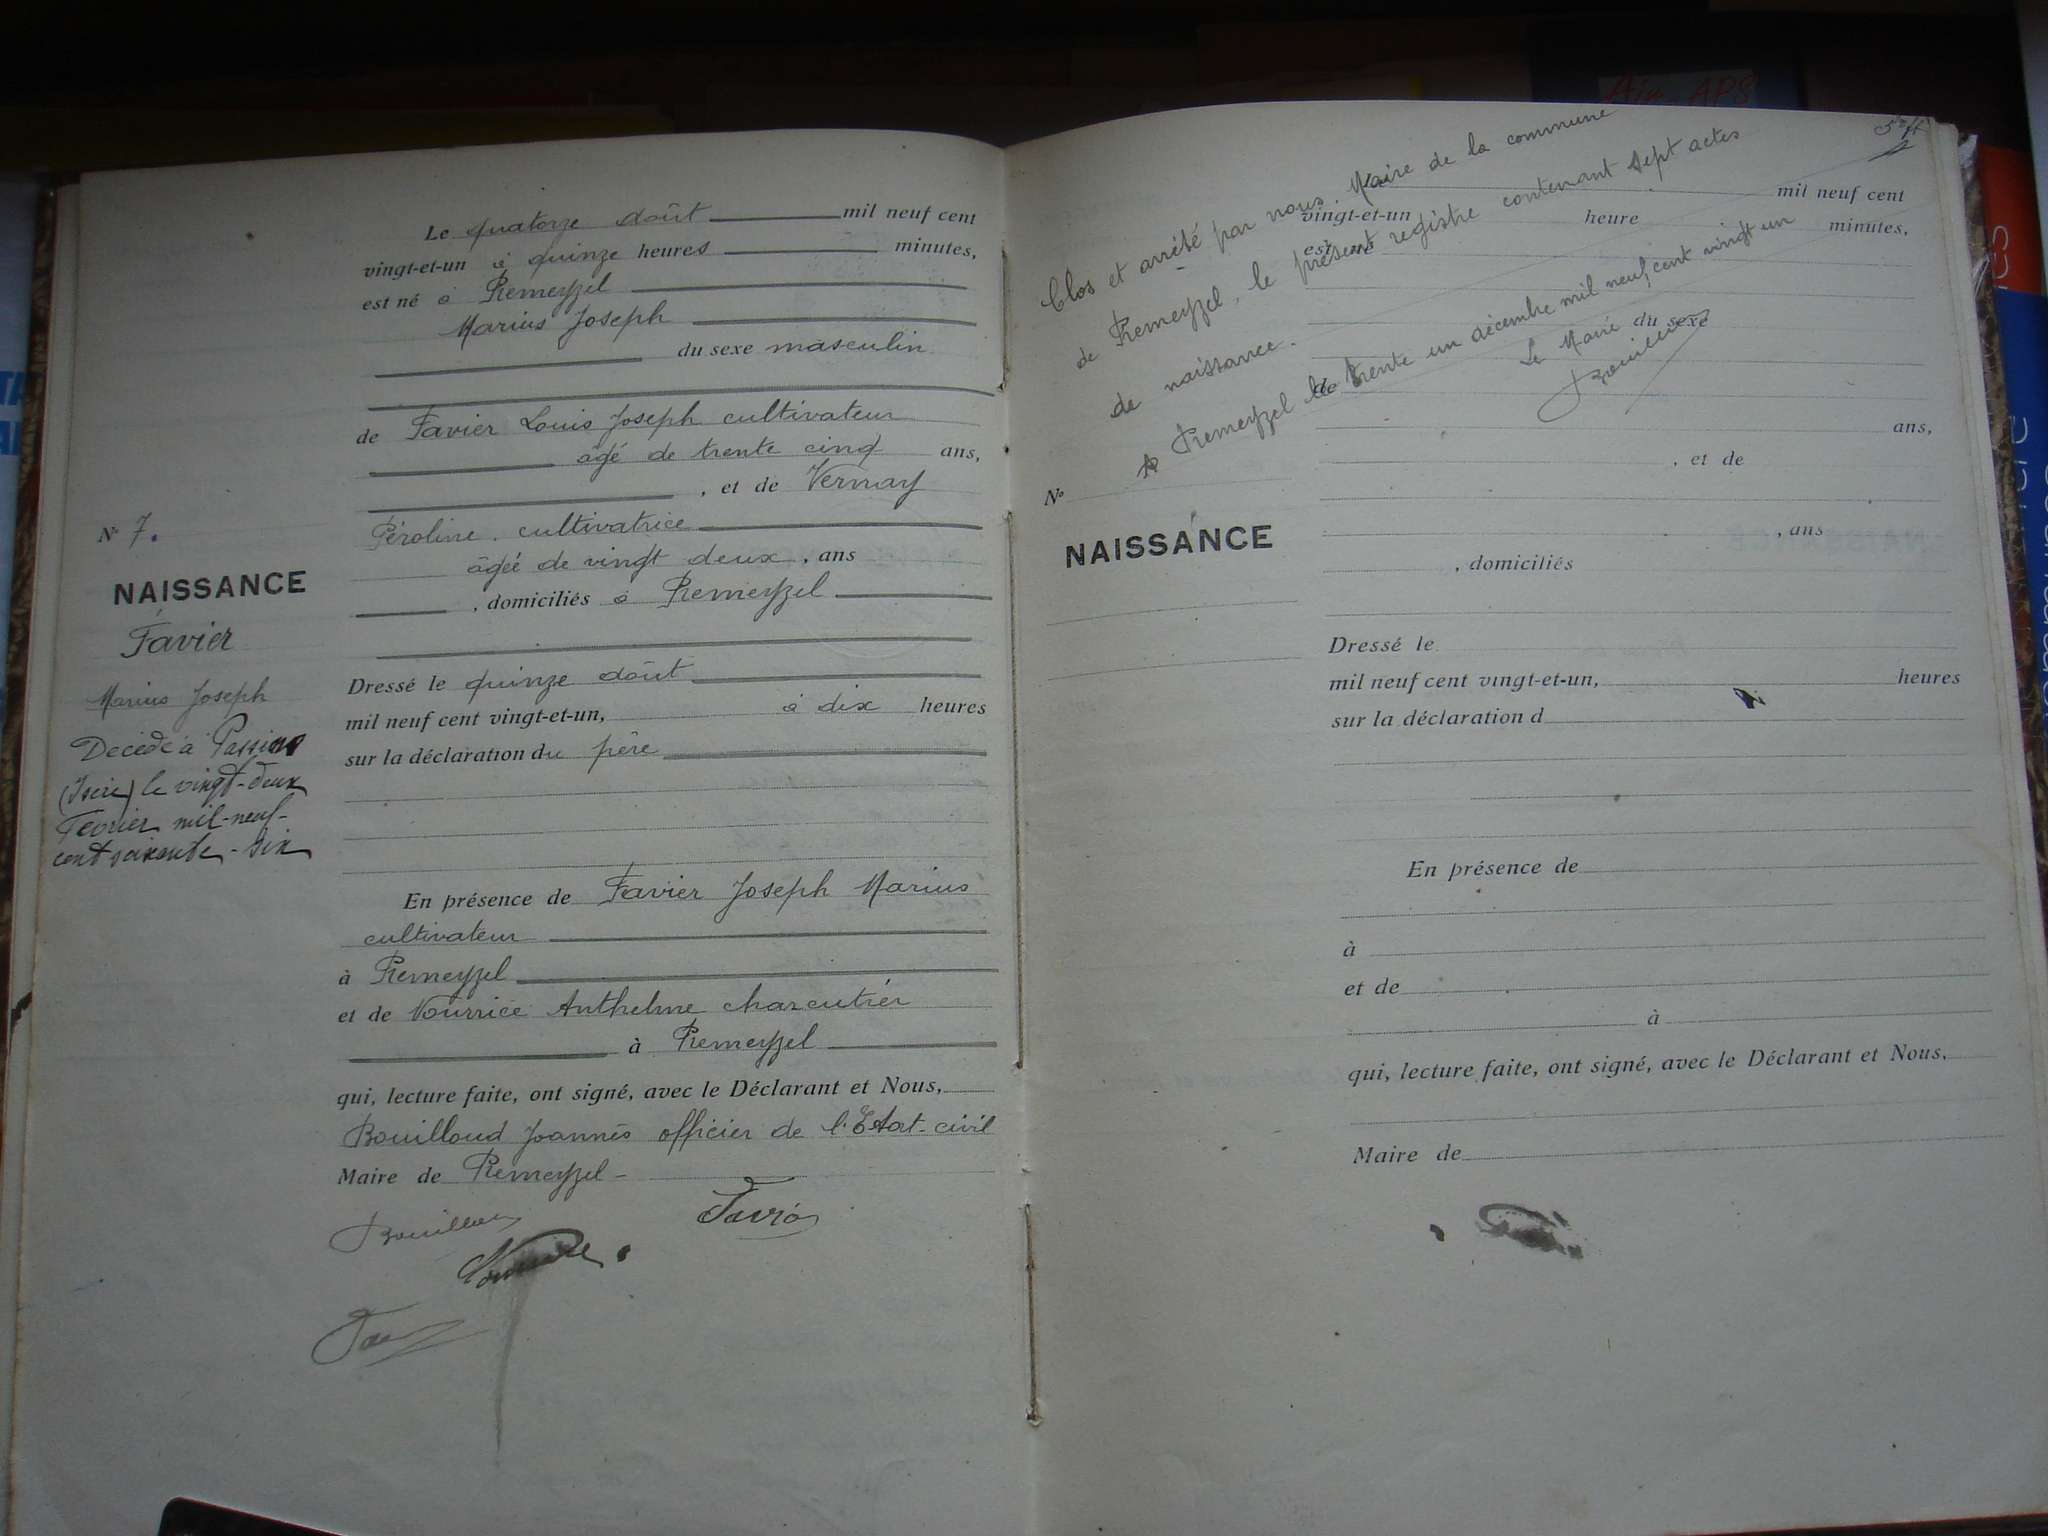 Le quatorze août mil neuf cent
vingt-et-un à quinze heures minutes,
est né à Premeyzel
Marius Joseph
du sexe masculin
de Favier Louis Joseph cultivateur
âgé de trente cinq ans,
, et de Vernay
Péroline cultivatrice
âgée de vingt deux , ans
, domiciliés à Premeyzel
Dressé le quinze août
mil neuf cent vingt-et-un, à dix heures
sur la déclaration du père
En présence de Favier Joseph Marius
cultivateur
à Premeyzel
et de Nourrice Anthelme charcutier
à Premeyzel
qui, lecture faite, ont signé, avec le Déclarant et Nous,
Bouilloud Joannès officier de l'Etat-civil
Maire de Premeyzel
N° 7.
NAISSANCE
Favier
Marius Joseph
Décédé à Passins
(Isère) le vingt-deux
Février mil-neuf-
cent soixante-six
Clos et arrêté par nous, Maire de la commune
de Premeyzel, le présent registre contenant sept actes
de naissance.
A Premeyzel le trente un décembre mil neuf cent vingt un
Le Maire
mil neuf cent
vingt-et-un heure minutes,
est né
du sexe
de
ans,
, et de
, ans
, domiciliés
N°
NAISSANCE
Dressé le
mil neuf cent vingt-et-un, heures
sur la déclaration d
En présence de
à
et de
à
qui, lecture faite, ont signé, avec le Déclarant et Nous,
Maire de
Ain APS